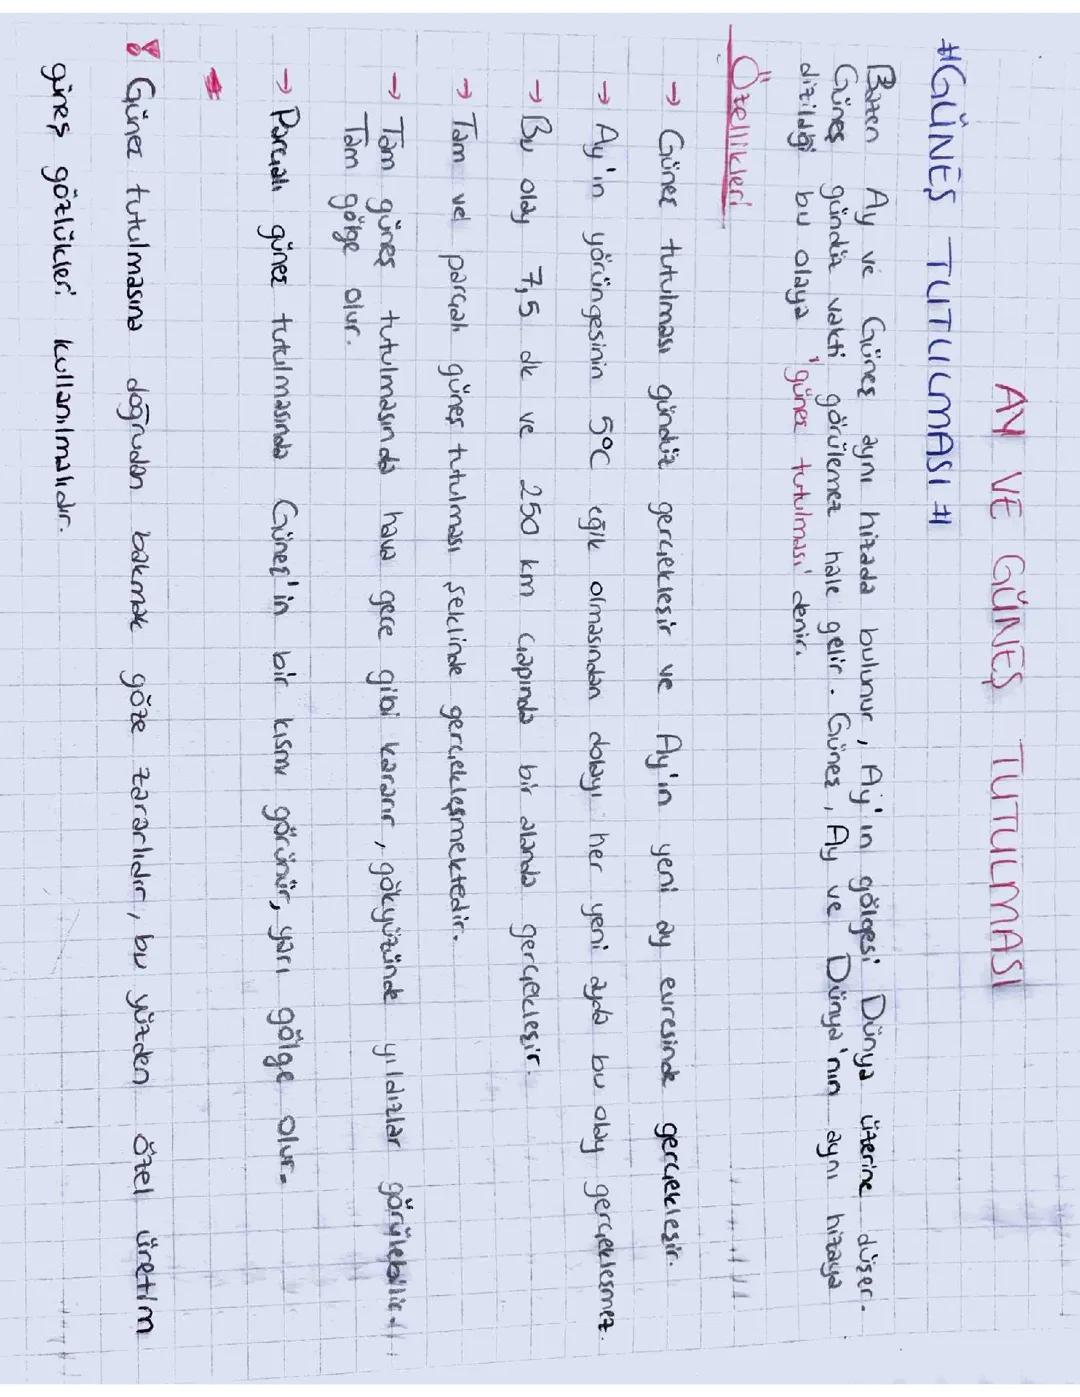 AY VE GÜNEŞ TUTULMASI
#GÜNEŞ TUTULMASI #
Bazen Ay ve Güneş aynı hizada bulunur, Ay'ın gölgesi Dünya üzerine düşer.
Güneş gündüz vakti görülemez hale gelir. Güneş, Ay ve Dünya'nın aynı hizaya
dizildiği bu olaya 'güneş tutulması' denir.
Özellikleri
→ Güneş tutulması gündüz gerçekleşir ve Ay'ın yeni ay evresinde gerçekleşir.
→ Ay'ın yörüngesinin 5°C eğik olmasından dolayı her yeni ayda bu olay gerçekleşmez.
→ Bu olay 7,5 dk ve 250 km çapında bir alanda gerçekleşir.
→ Tam ve parçalı güneş tutulması şeklinde gerçekleşmektedir.
→ Tam güneş tutulmasında hava gece gibi kararır, gökyüzünde yıldızlar görülebilir.
Tam gölge olur.
→ Parçalı güneş tutulmasında Güneş'in bir kısmı görünür, yarı gölge olur.
! Güneş tutulmasına doğrudan bakmak göze zararlıdır, bu yüzden özel üretim
güneş gözlükleri kullanılmalıdır.